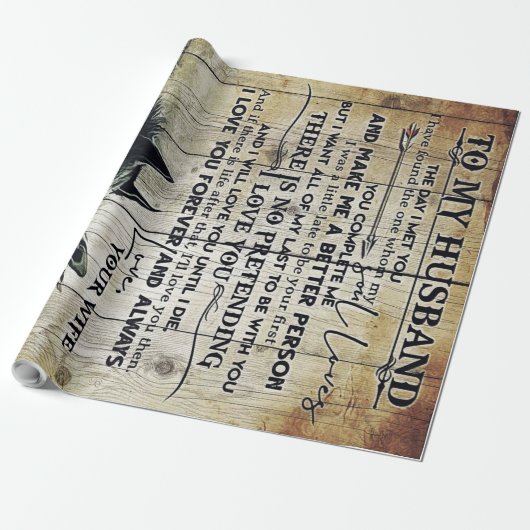 TO MY HUSBAND
THE DAY I MET YOU
I have found the one whom my
soul loves
YOU COMPLETE ME
AND MAKE ME A BETTER PERSON
I was a little late to be your first
BUT I WANT ALL OF MY LAST TO BE WITH YOU
THERE IS NO PRETENDING
I LOVE YOU
AND I WILL LOVE YOU UNTIL I DIE
And if there is life after that, I'll love you then
I LOVE YOU FOREVER AND ALWAYS
Love,
YOUR WIFE